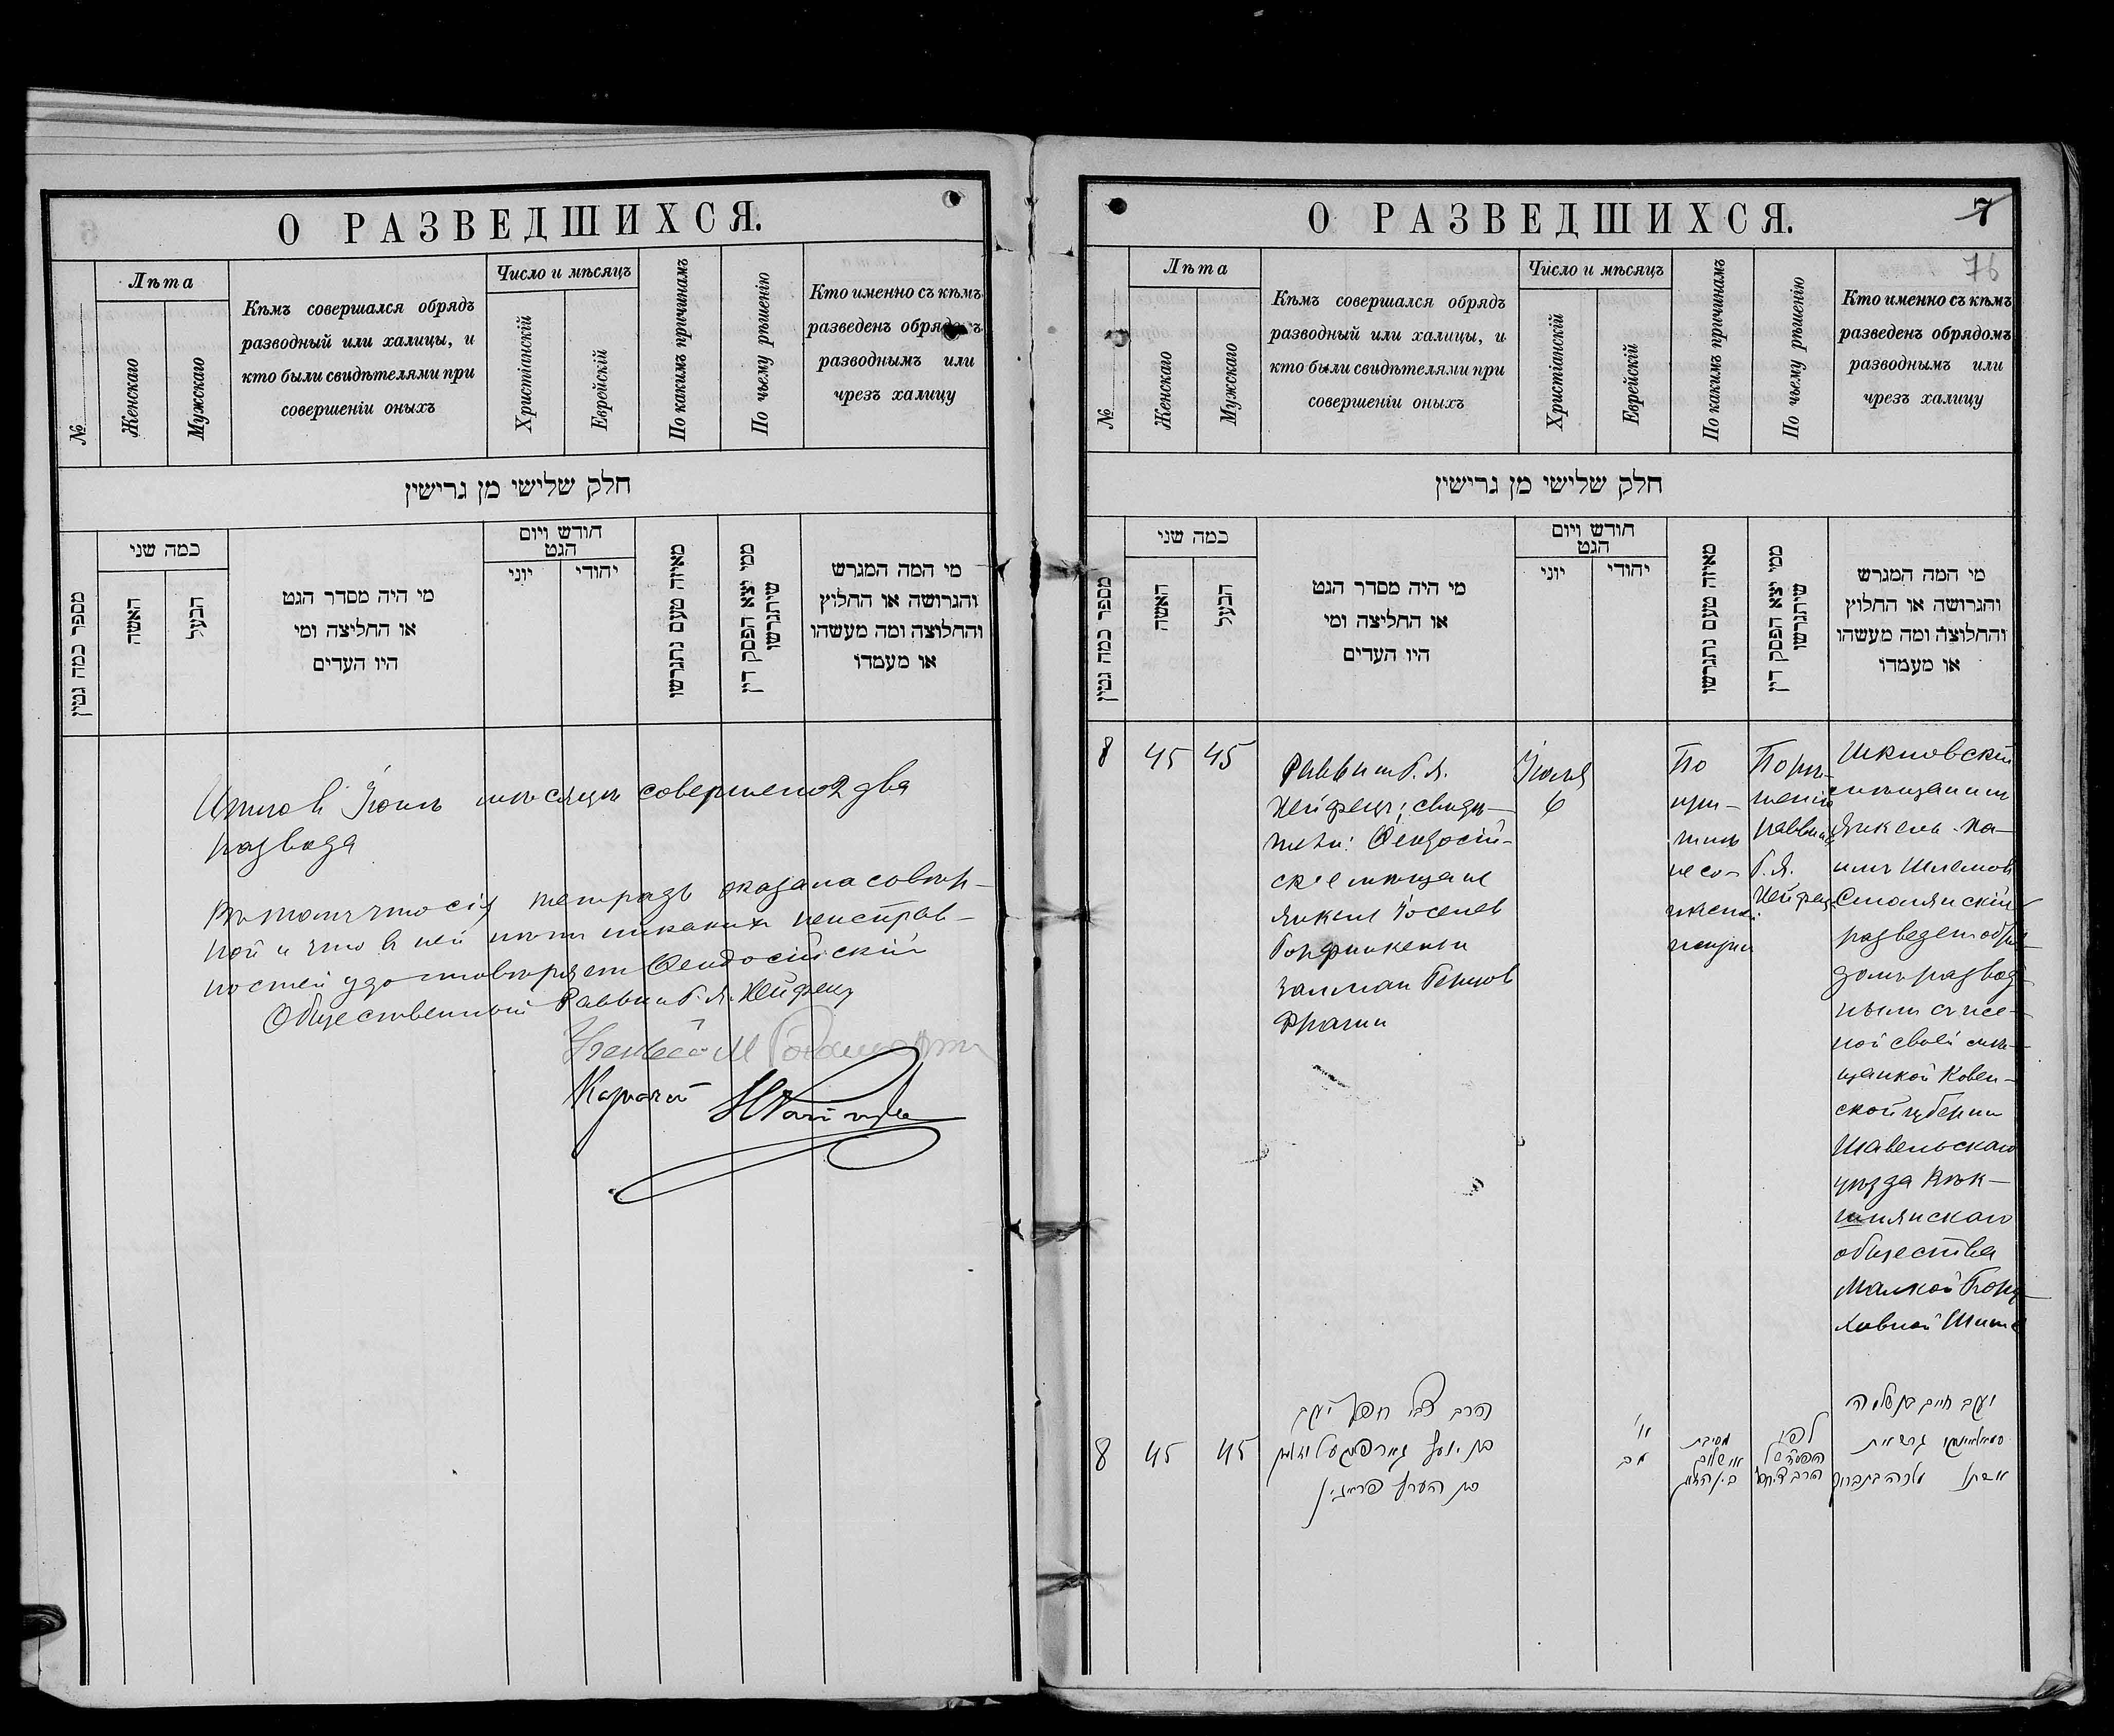 О РАЗВЕДШИХСЯ.
№
Лѣта
Женскаго
Мужскаго
Кѣмъ совершался обрядъ
разводный или халицы, и
кто были свидѣтелями при
совершеніи оныхъ
Число и мѣсяцъ
Христіанскій
Еврейскій
По какимъ причинамъ
По чьему рѣшенію
Кто именно съ кѣмъ
разведенъ обрядомъ
разводнымъ или
чрезъ халицу
חלק שלישי מן גרישין
מספר כמה גטין
כמה שני
האשה
הבעל
מי היה מסדר הגט
או החליצה ומי
היו העדים
חודש ויום
הגט
יוני
יהודי
מאיזה טעם נתגרשו
ממי יצא הפסק דין
שיתגרשו
מי המה המגרש
והגרושה או החלוץ
והחלוצה ומה מעשהו
או מעמדו
Итого в Іюнѣ мѣсяцѣ совершено 2 два
развода
Въ томъ что сія тетрадь оказала совѣр-
ной и что в ней никаких неисправ-
ностей удостовѣряет Ѳеодосійскій
Общественный Раввин Б. Я. Хейфец
О РАЗВЕДШИХСЯ.
7
76
№
Лѣта
Женскаго
Мужскаго
Кѣмъ совершался обрядъ
разводный или халицы, и
кто были свидѣтелями при
совершеніи оныхъ
Число и мѣсяцъ
Христіанскій
Еврейскій
По какимъ причинамъ
По чьему рѣшенію
Кто именно съ кѣмъ
разведенъ обрядомъ
разводнымъ или
чрезъ халицу
חלק שלישי מן גרישין
מספר כמה גטין
כמה שני
האשה
הבעל
מי היה מסדר הגט
או החליצה ומי
היו העדים
חודש ויום
הגט
יוני
יהודי
מאיזה טעם נתגרשו
ממי יצא הפסק דין
שיתגרשו
מי המה המגרש
והגרושה או החלוץ
והחלוצה ומה מעשהו
או מעמדו
8
45
45
Раввин Б. Я.
Хейфец; свидѣ-
тели: Ѳеодосій-
ские мещане
Янкель Іоселев
Залман Герцов
Фрагин
Іюня
6
По
при-
чинѣ
несо-
гласной
жизни
По рѣ-
шенію
Раввина
Б. Я.
Хейфец
Шкловскій
мещанин
Янкель-Ха-
имъ Шлемов
Смолянскій
разведен обря-
дом развод-
ным с же-
ной своей ме-
щанкой Ковен-
ской губерніи
Шавельскаго
уѣзда Вѣк-
шнянскаго
общества
Малкой Бору-
ховной
8
45
45